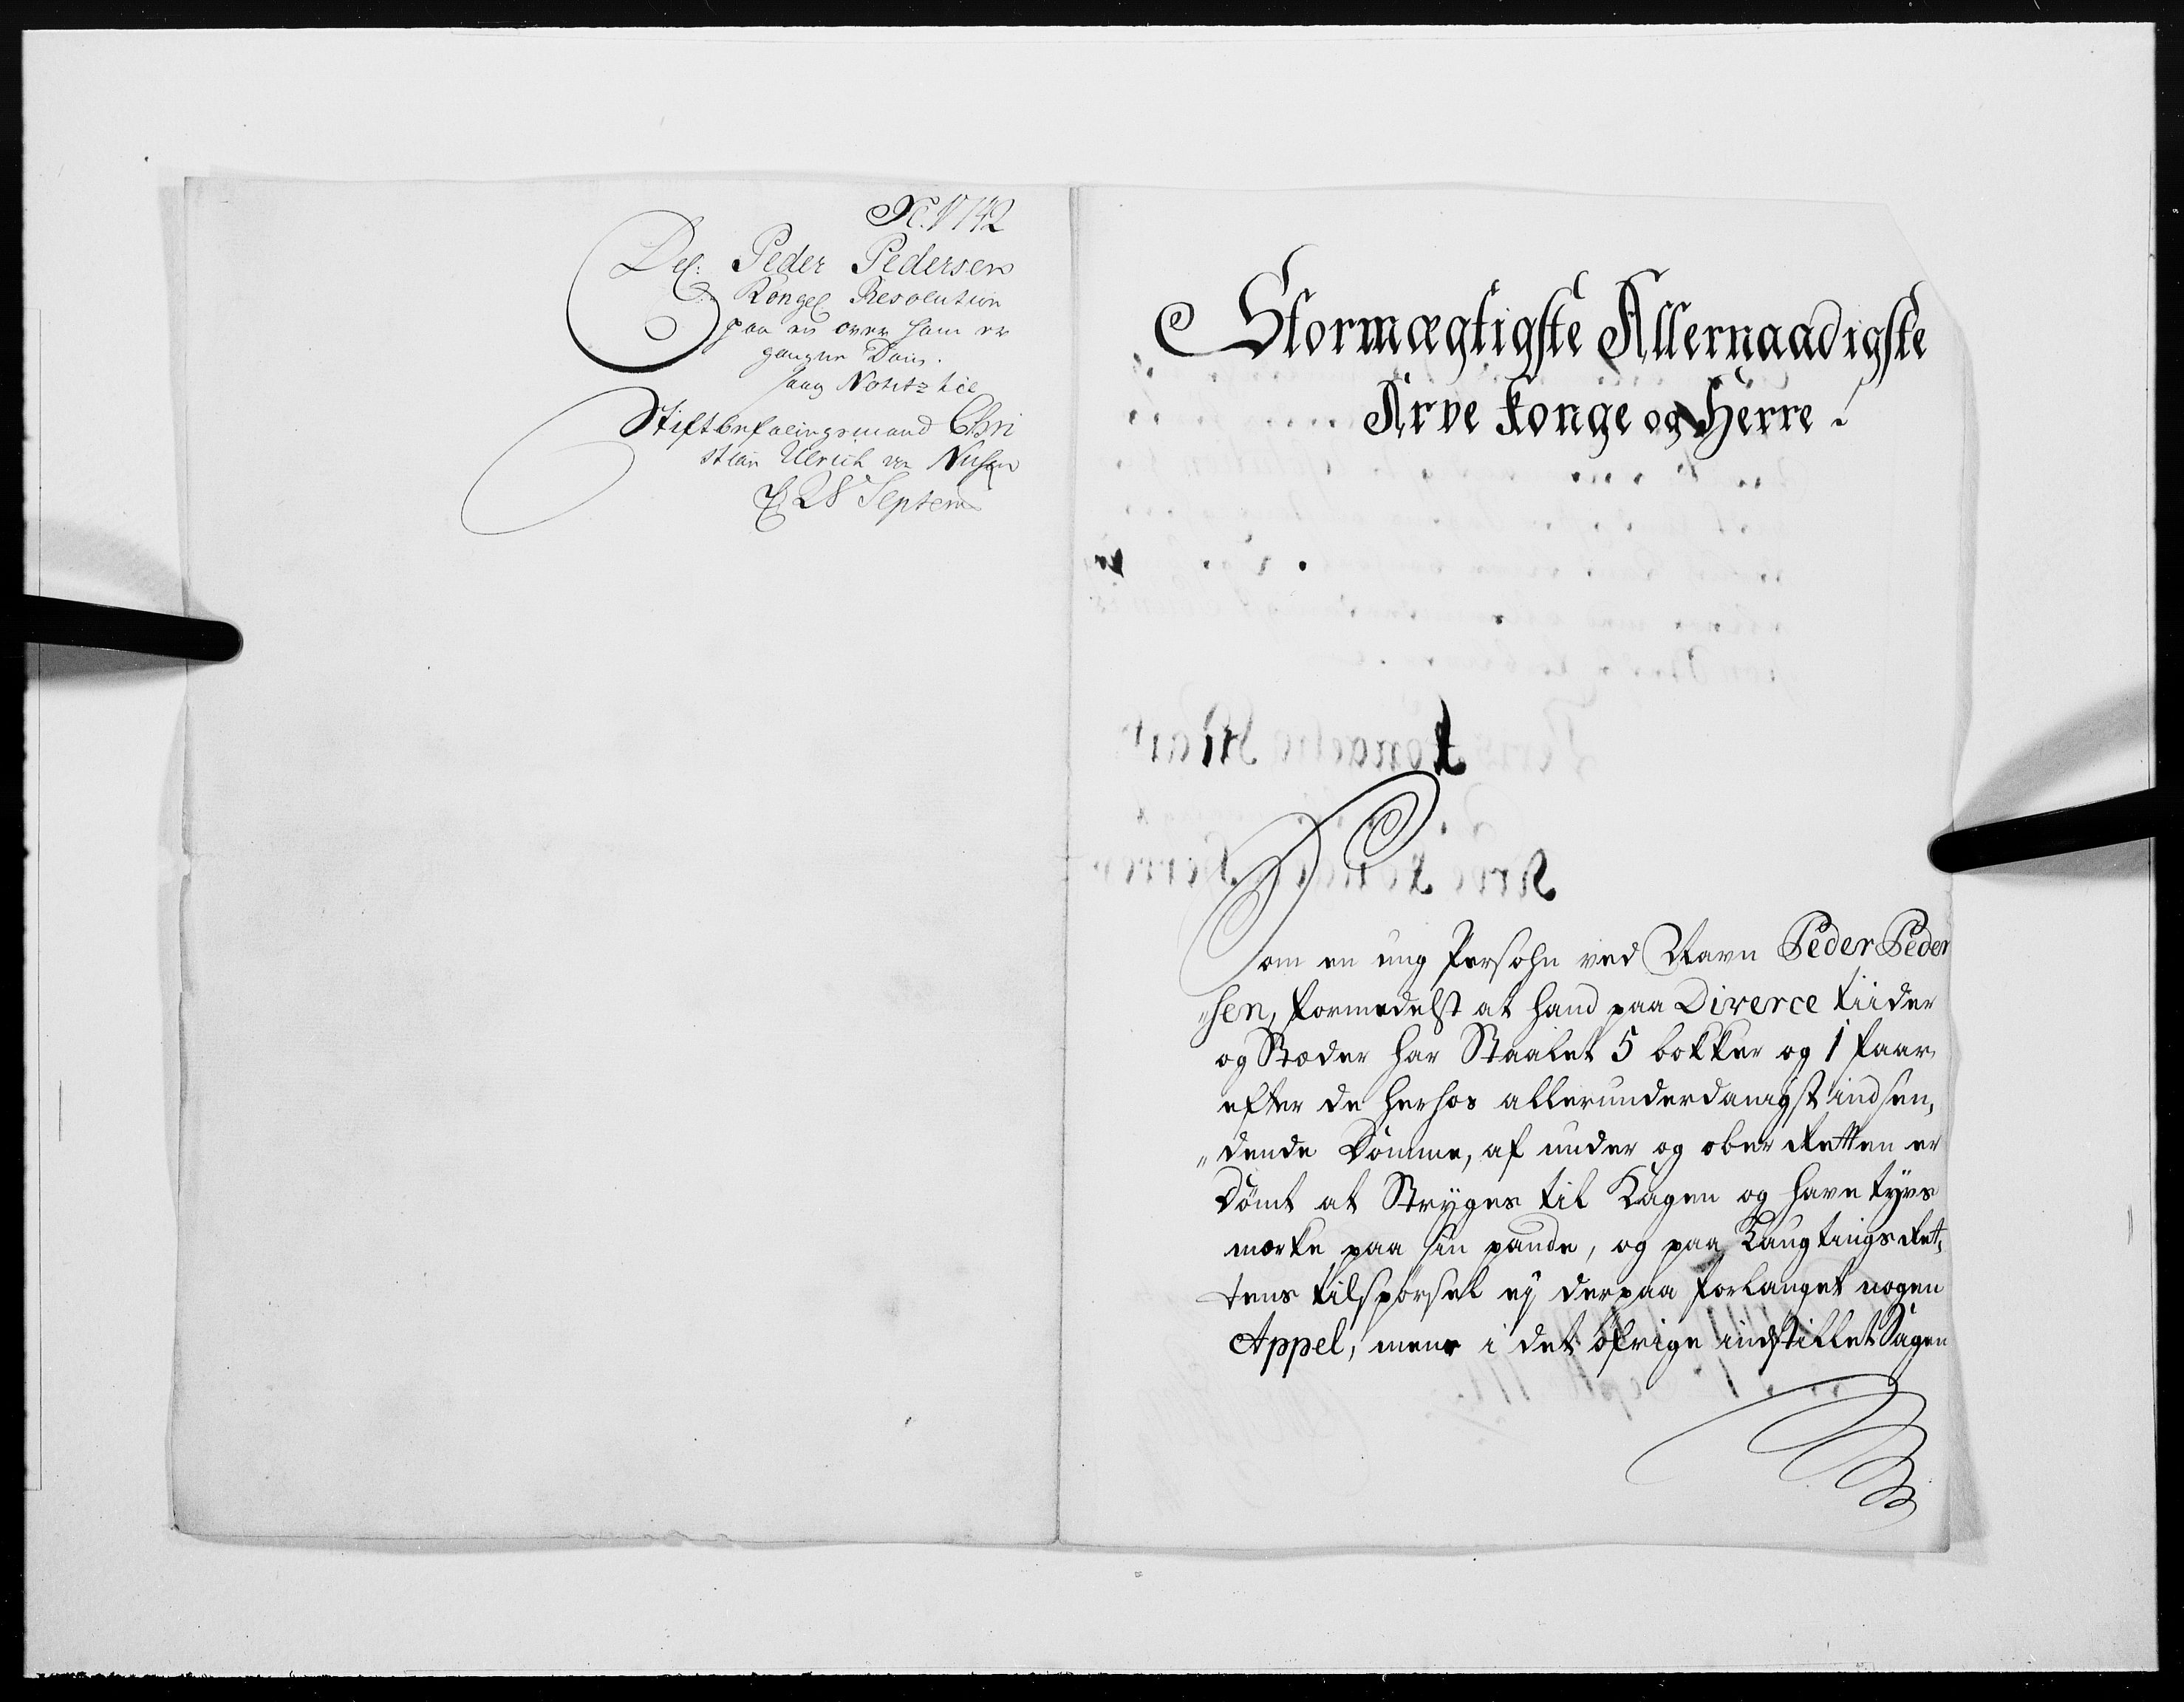 No. 1742
Del: Peder Pedersen
Kongel Resolution
paa en over ham er
gangne Dom.
saug Notitz til
Stiftbefalingsmand Chri
stian Ulrich von Nissen
28 Septem
Stormægtigste Allernaadigste
Arve Konge og Herre!
Som en ung Persohn ved Navn Peder Peder
"sen, formedelst at hand paa Diverce tiider
og Stæder har Staalet 5 bokker og 1 faar
efter de herhos allerunderdanigst indsen,
"dende Domme, af under og ober Retten er
Dömt at Stryges til Kagen og have tyvs
mærke paa sin pande, og paa Laugtings Ret,
tens tilspörsel ey derpaa forlanget nogen
Appel, mens i det öfrige indstillet Sagen